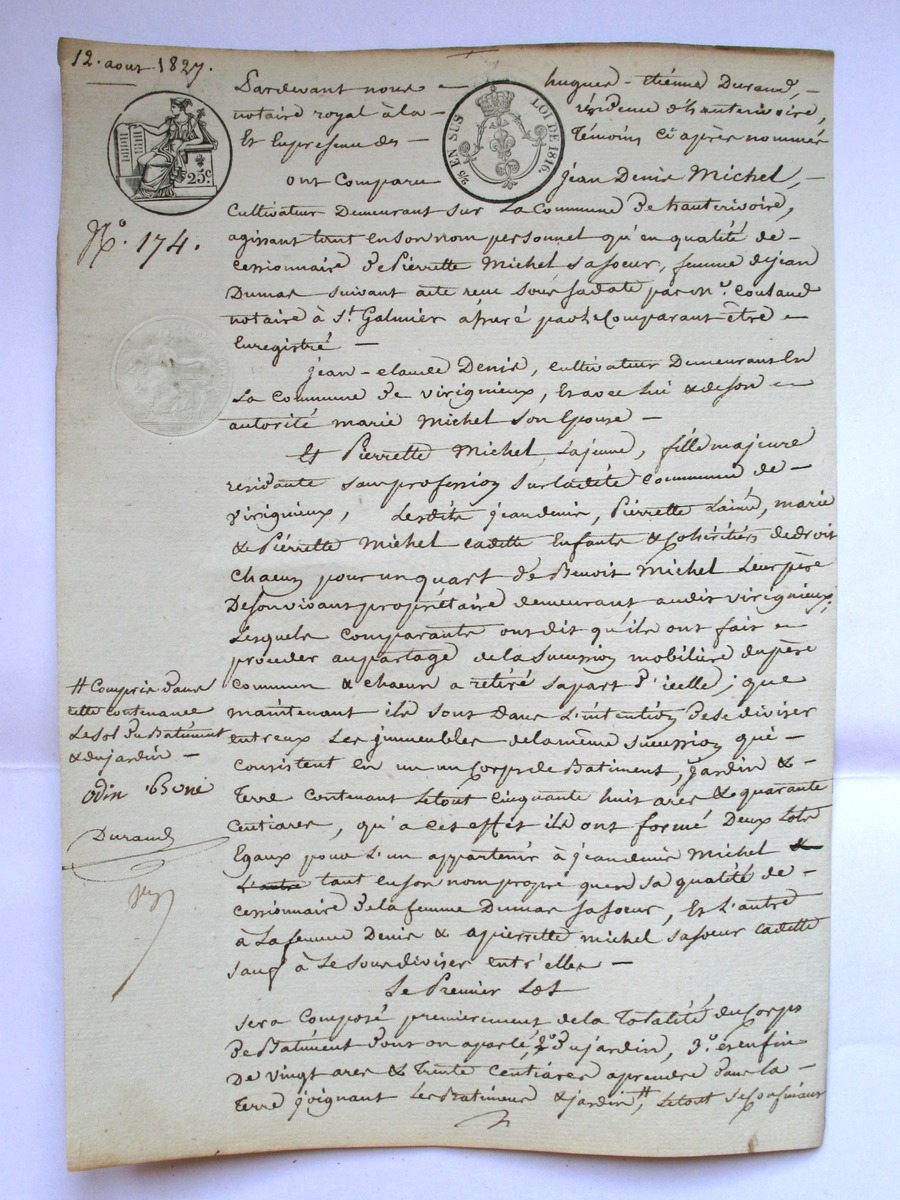 12. aout 1827.
Pardevant nous hugues-étienne Durand,
notaire royal à la résidence d'hauterivoire,
Et En presence des Témoins Ci après nommés
25 c.
2/5 EN SUS LOI DE 1816.
ont Comparu jean Denis Michel,
N.° 174.
Cultivateur Demeurant sur La Commune de hauterivoire,
agissant tant en son nom personnel qu'en qualité de
cessionnaire de Pierrette Michel sa soeur, femme de jean
Dumas suivant acte reçu sous sa date par m.e Coutaud
notaire à St. Galmier assuré par le Comparant être
Enregistré
jean-claude Denis, cultivateur Demeurant En
La Commune de virigneux, Et avec lui & de son
autorité marie Michel son Epouse
Et Pierrette Michel, La jeune, fille majeure
residante sans profession sur ladite Commune de
virigneux, Lesdits jean denis, Pierrette L'ainée, marie
& Pierrette Michel cadette Enfants & Cohéritiers de droit
chacun pour un quart de Benoit Michel Leur père
De son vivant propriétaire demeurant audit virigneux;
Lesquels comparants ont dit qu'ils ont fait
procéder au partage de la succession mobilière du père
commun & chacun a retiré sa part d'icelle; que
maintenant ils sont dans L'intention de se diviser
entreux Les jmmeubles de la même succession qui
consistent en un un Corps de Batiment, jardin &
Terre contenant Le tout cinquante huit ares & quarante
Centiares, qu'a cet effet ils ont formé Deux Lots
Egaux pour L'un appartenir à jean denis Michel &
L'autre tant en son nom propre quen sa qualité de
cessionnaire de la femme Dumas sa soeur, Et L'autre
à La femme Denis & a pierrette michel sa soeur cadette
sauf à Le sousdiviser entr'elles
Le Premier Lot
sera Composé premierement de la Totalité du Corps
de Batiment dont on a parlé, 2.° Du jardin, 3.° et enfin
De vingt ares & Trente Centiares aprendre dans la
Terre joignant Les Batiments & jardin #, Le tout se Confinant
# Compris dans
cette contenance
Le sol du Batiment
& du jardin
Odin Boné
Durand